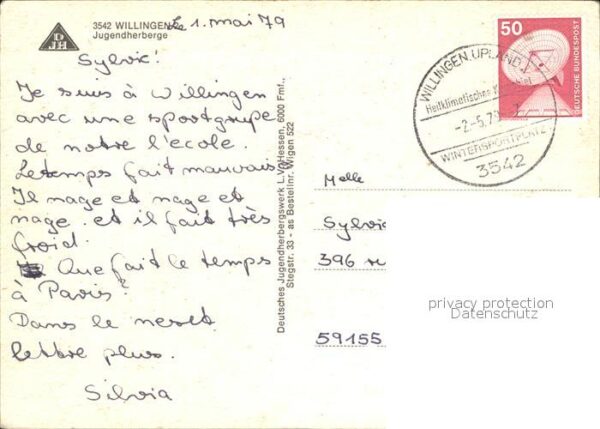 3542 WILLINGEN
Jugendherberge
DJH
Le 1. mai 79
Sylvie!
Je suis à Willingen
avec une sportgrupe
de notre l'ecole.
Letemps fait mauvais
Il nage et nage et
nage et il fait très
froid.
Que fait le temps
à Paris?
Dans le
lettre plus.
Silvia
Deutsches Jugendherbergswerk L.V. Hessen, 6000 Fmf.,
Stegstr. 33 - as Bestellnr. Wigen 522
50
DEUTSCHE BUNDESPOST
WILLINGEN, UPLAND
Heilklimatisches
-2.-5.79
WINTERSPORTPLATZ
3542
Melle
Sylvie
396 ru
59155
privacy protection
Datenschutz